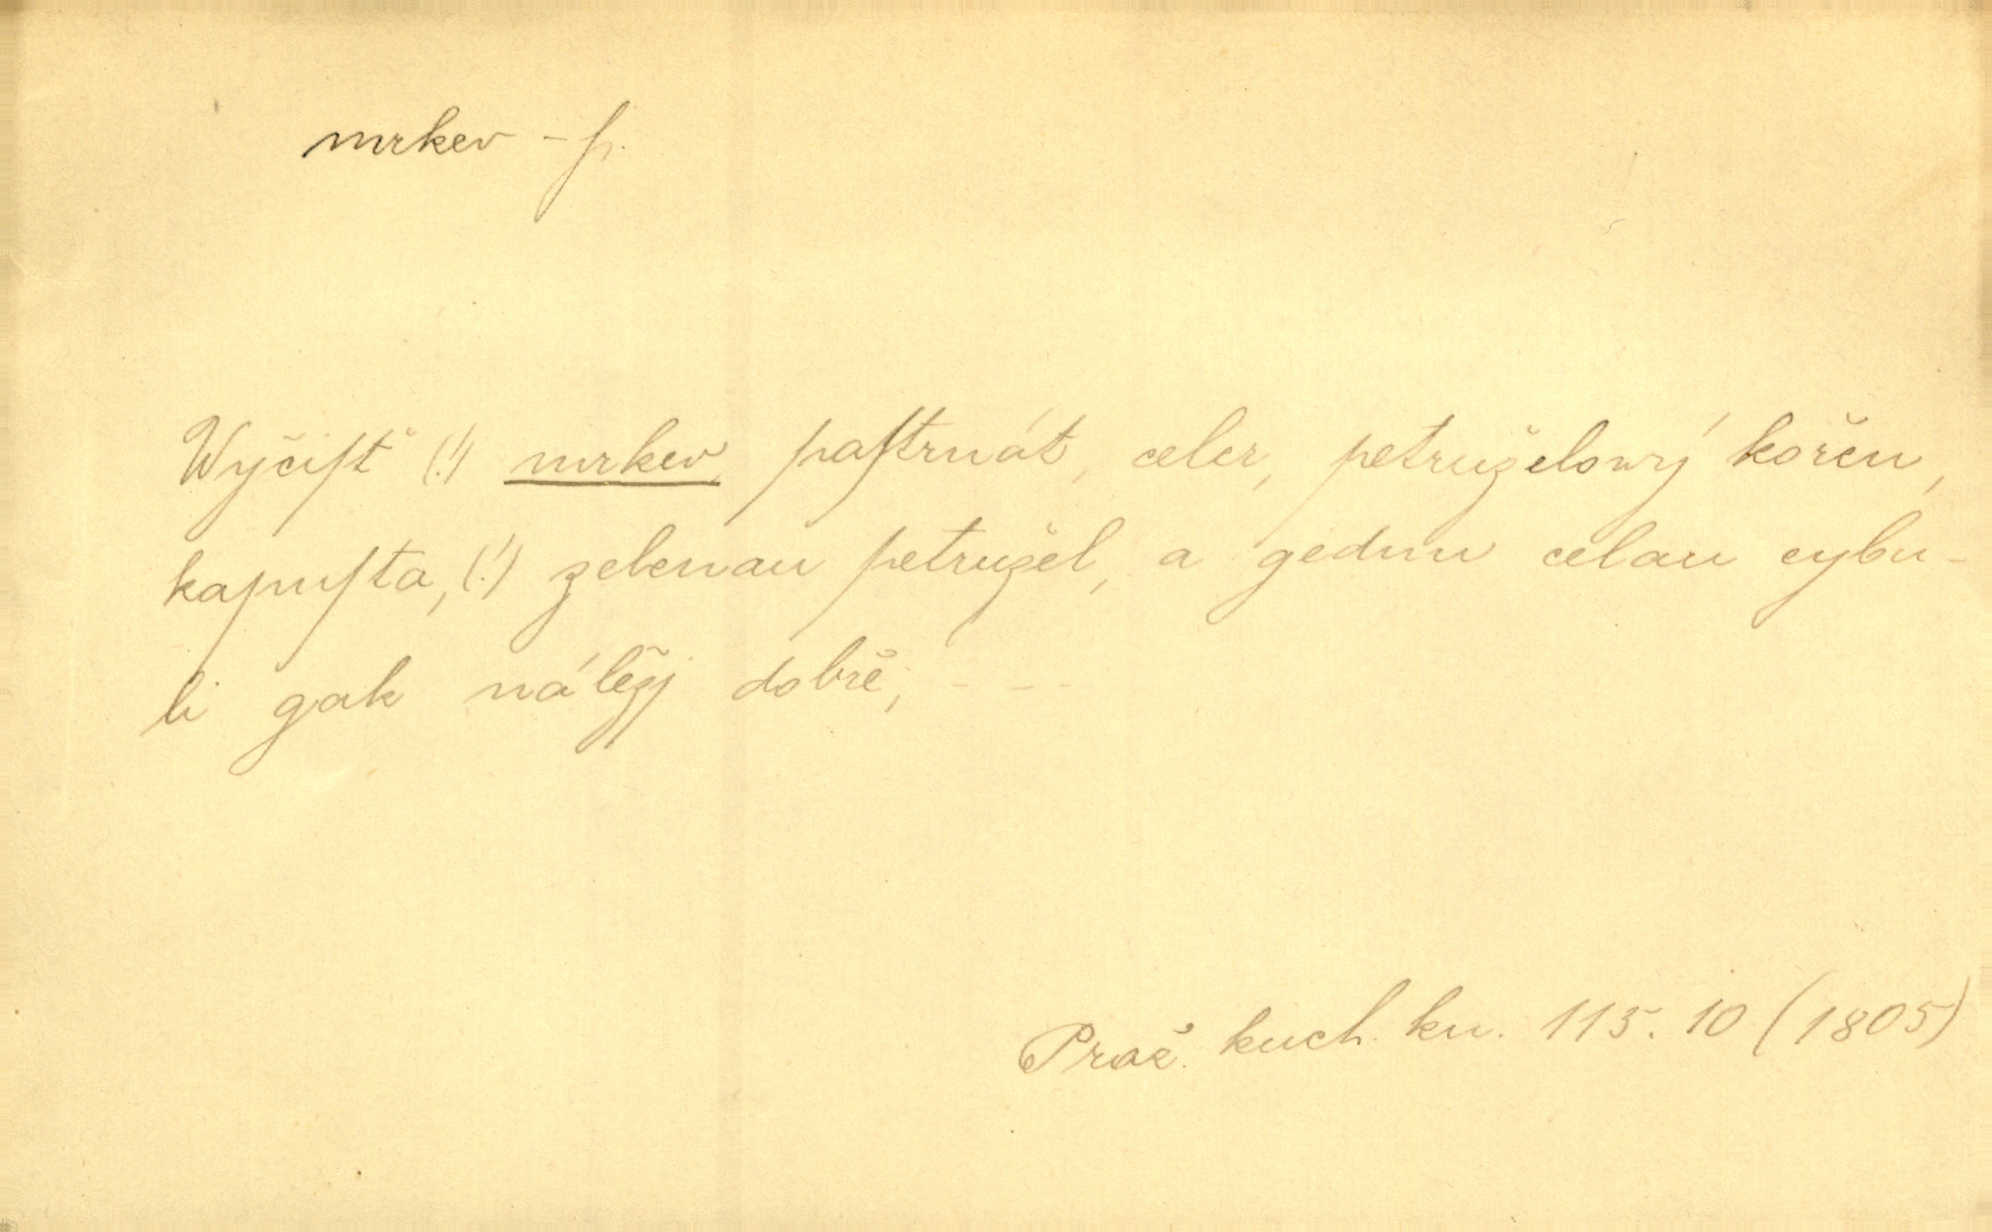 mrkev – f.
Wyčiſť (!) mrkev, paſtrnát, celer, petruželowý kořen,
kapuſta, (!) zelenau petružel, a gednu celau cybu-
li gak náležj dobře; - - -
Praž. kuch. kn. 115. 10 (1805)